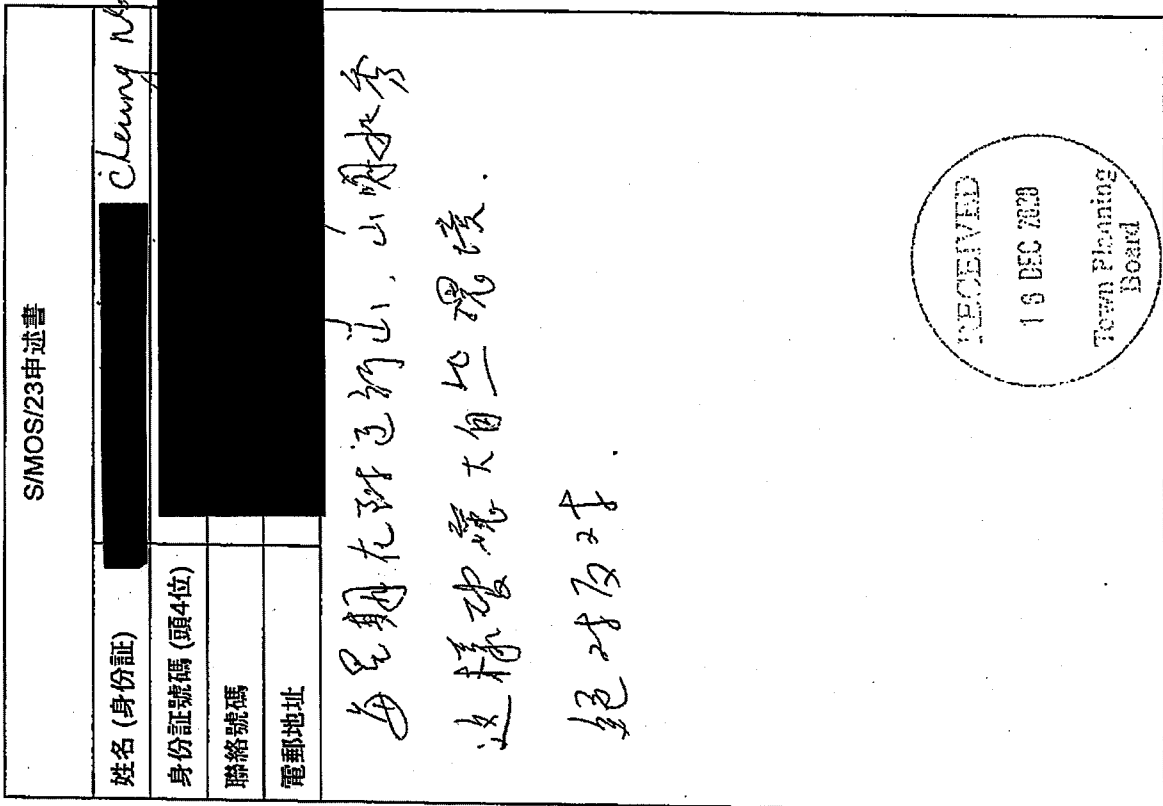 S/MOS/23申述書
姓名 (身份証) Cheung
身份証號碼 (頭4位)
聯絡號碼
電郵地址
每星期在附近行山, 山明水秀
这樣破壞大自然環境.
絕对反对.
RECEIVED
Town Planning
Board